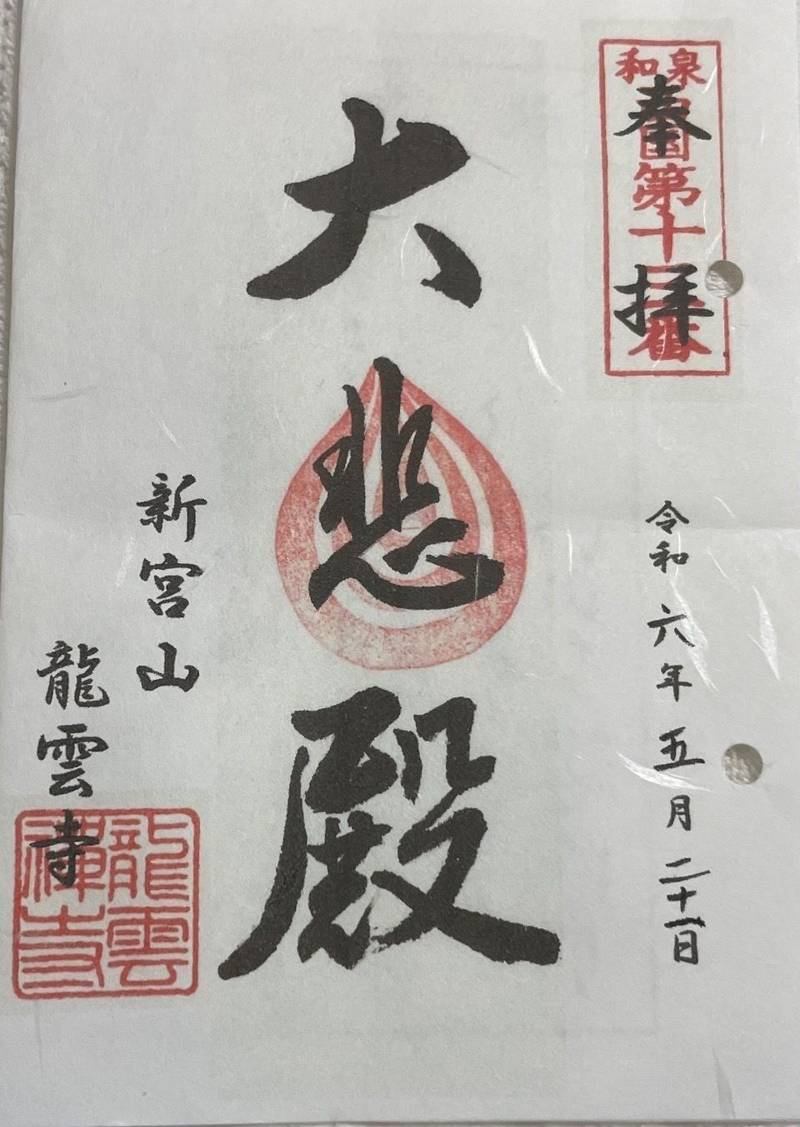 和泉
西国第十番
奉拝
令和六年五月二十一日
大悲殿
新宮山
龍雲寺
龍雲
禪寺